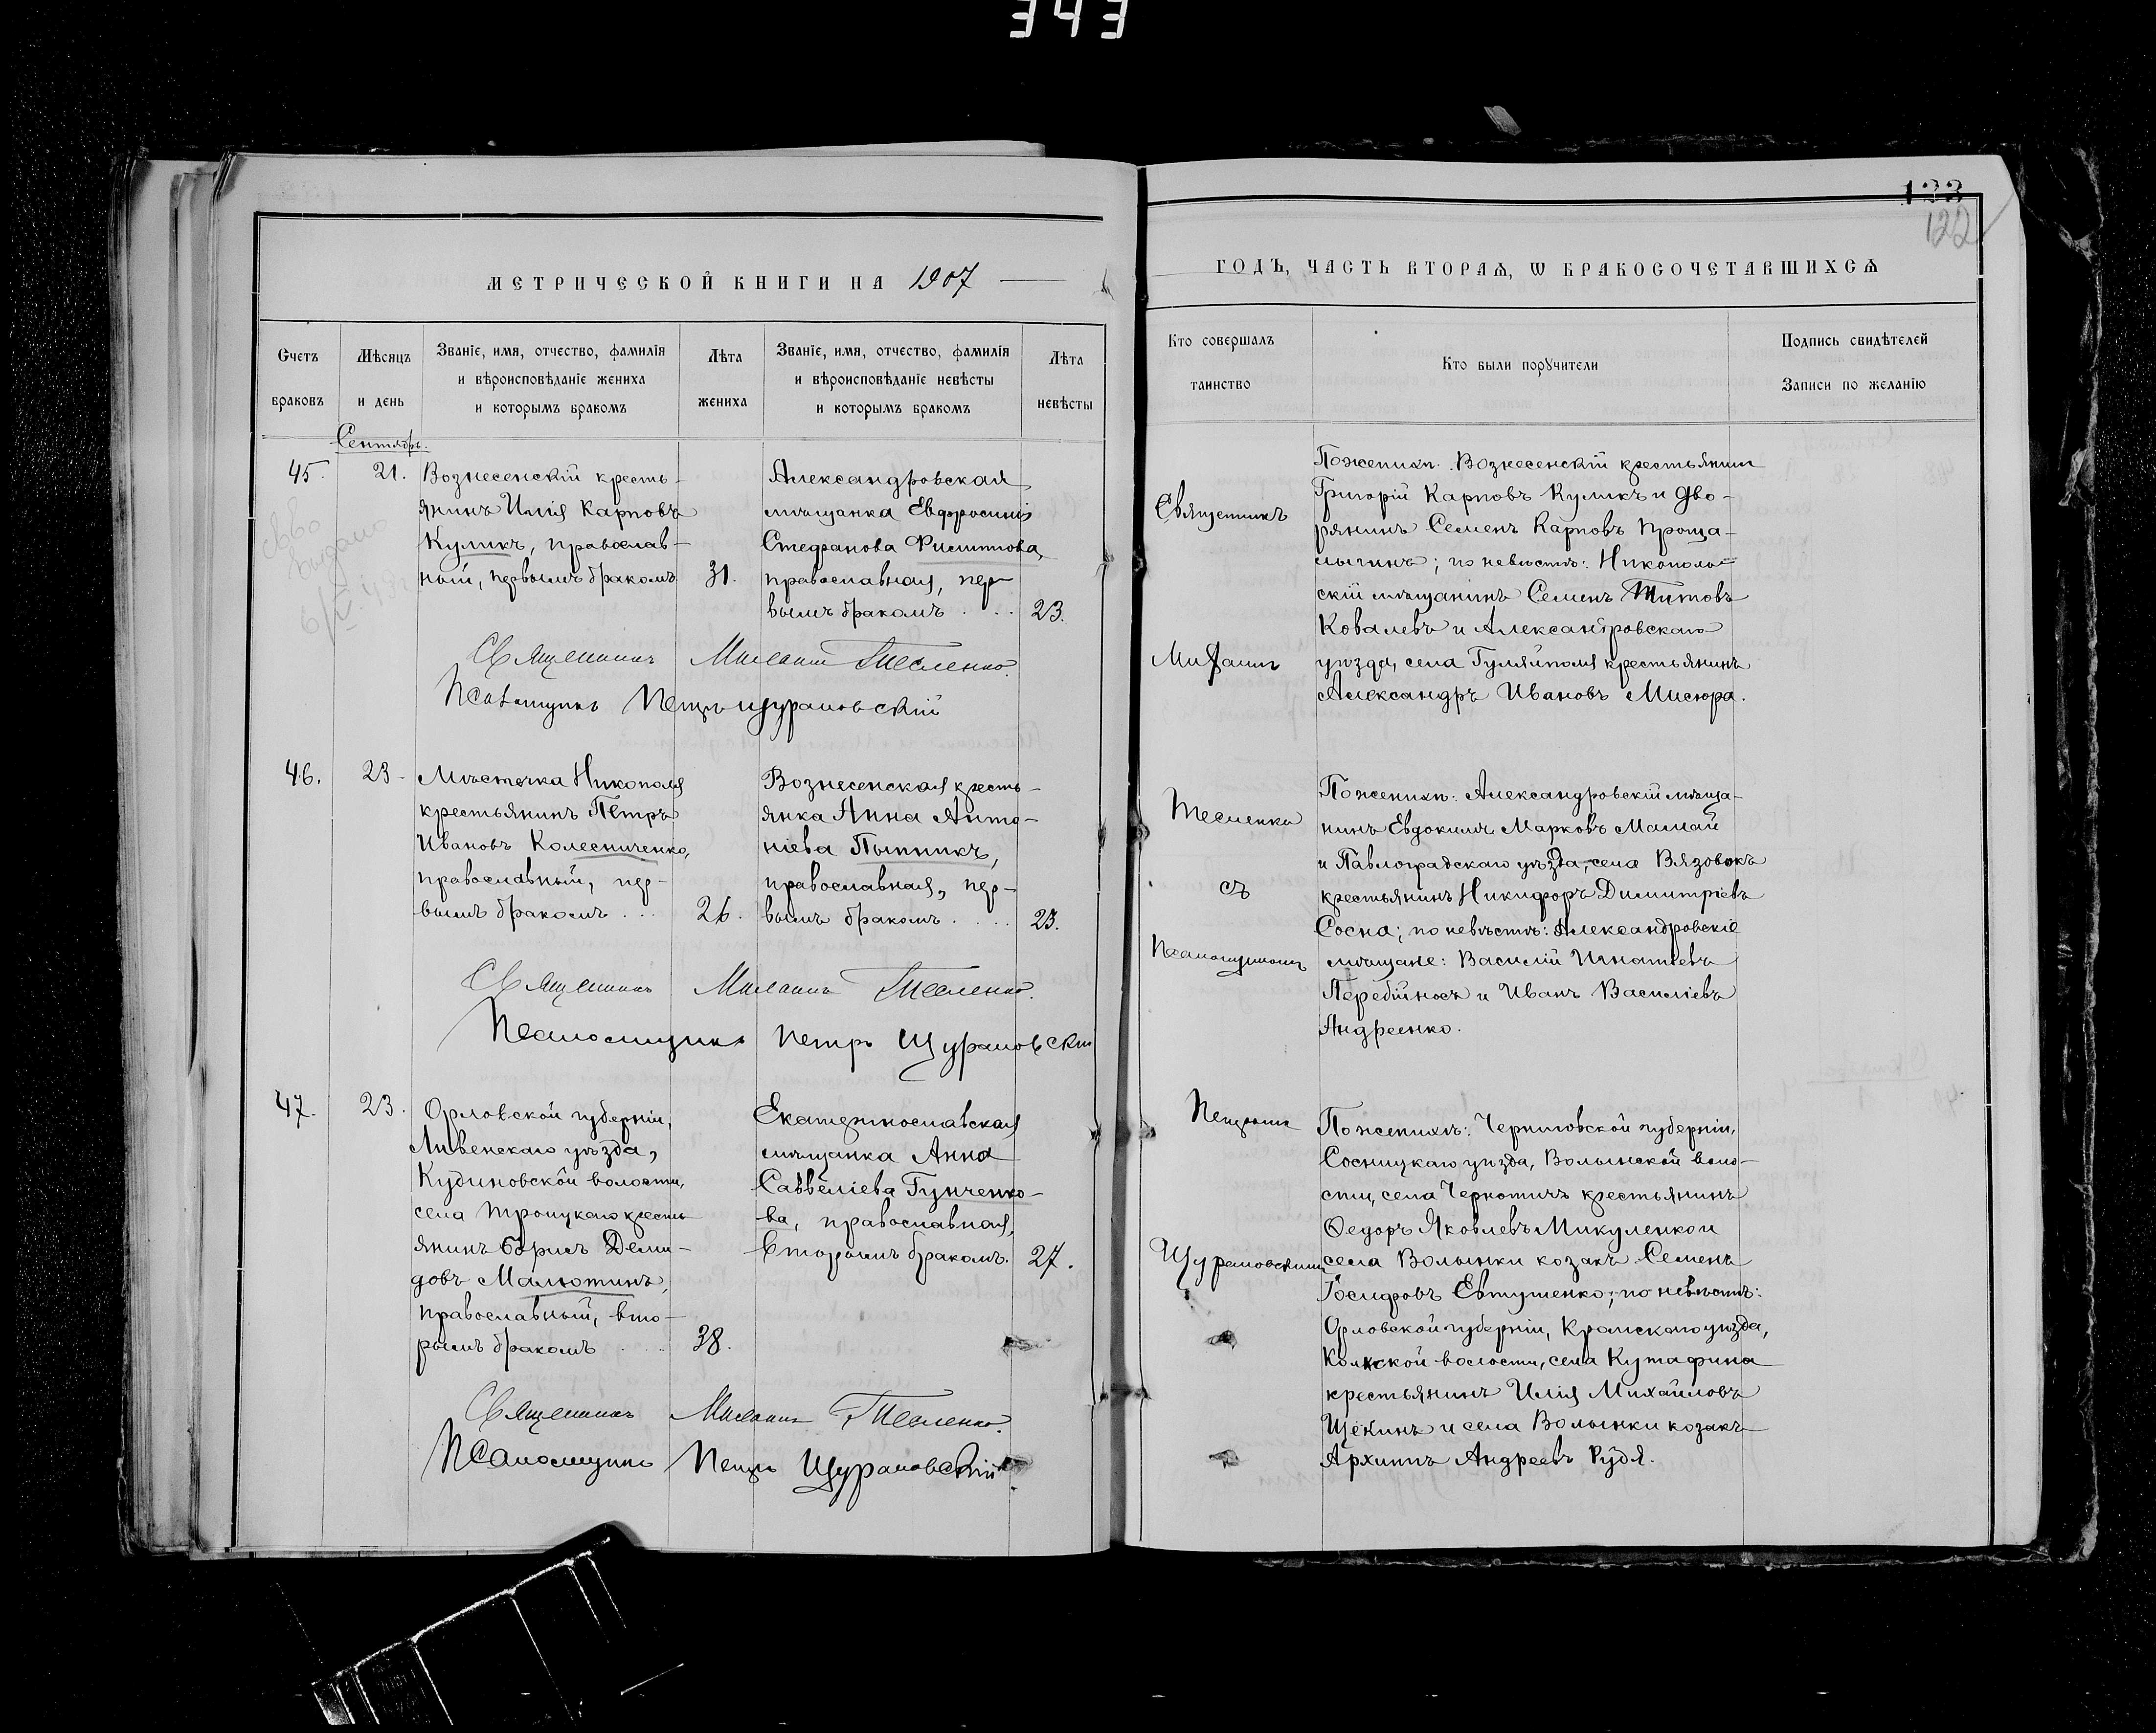 343
123
122
МЕТРИЧЕСКОЙ КНИГИ НА 1907
ГОДЪ, ЧАСТЬ ВТОРАѦ, Ѡ БРАКОСОЧЕТАВШИХСѦ
Счетъ браковъ
Мѣсяцъ и день
Званіе, имя, отчество, фамилія
и вѣроисповѣданіе жениха
и которымъ бракомъ
Лѣта жениха
Званіе, имя, отчество, фамилія
и вѣроисповѣданіе невѣсты
и которымъ бракомъ
Лѣта невѣсты
Кто совершалъ
таинство
Кто были порꙋчители
Подпись свидѣтелей
Записи по желанію
Сентябрь.
45.
21.
Вознесенскій кресть-
янинъ Илія Карповъ
Куликъ, православ-
ный, первымъ бракомъ
31.
Александровская
мѣщанка Евфросинія
Стефанова Филиппова,
православная, пер-
вымъ бракомъ . . .
23.
Священникъ Милетій Тесленко.
Псаломщикъ Петръ Щурановскій
выдано
46.
23
Мѣстечка Никополя
крестьянинъ Петръ
Ивановъ Колесниченко,
православный, пер-
вымъ бракомъ . . .
26.
Вознесенская кресть-
янка Анна Анто-
ніева Пытикъ,
православная, пер-
вымъ бракомъ . . . .
23.
Священникъ Тесленко.
Псаломщикъ Петръ Щурановскій
47.
23.
Орловской губерніи,
Ливенскаго уѣзда,
Кудиновской волости,
села Троицкаго кресть
янинъ Борисъ Деми-
довъ Малютинъ,
православный, вто-
рымъ бракомъ . . .
38.
Екатеринославская
мѣщанка Анна
Саввеліева Гунченко-
ва, православная,
вторымъ бракомъ.
27.
Священникъ Тесленко.
Псаломщикъ Петръ Щурановскій
Священникъ
Тесленко
съ
Псаломщикомъ
Петромъ
Щурановскимъ
По женихѣ: Вознесенскій крестьянинъ
Григорій Карповъ Куликъ и Дво-
рянинъ Семенъ Карповъ Проща-
лыгинъ; по невѣстѣ: Никополь-
скій мѣщанинъ Семенъ Титовъ
Ковалевъ и Александровскаго
уѣзда, села Гуляйполя крестьянинъ
Александръ Ивановъ Мисюра.
По женихѣ: Александровскій мѣща-
нинъ Евдокимъ Марковъ Мамай
и Павлоградскаго уѣзда, села Вязовокъ
крестьянинъ Никифоръ Димитріевъ
Сосна; по невѣстѣ: Александровскіе
мѣщане: Василій Игнатіевъ
Перебійносъ и Иванъ Василіевъ
Андреенко.
По женихѣ: Черниговской губерніи,
Сосницкаго уѣзда, Волынской воло-
сти, села Чернотичъ крестьянинъ
Ѳедоръ Яковлевъ Микуленко и
села Волынки козакъ Семенъ
Іосифовъ Евтушенко; по невѣстѣ:
Орловской губерніи, Кромскаго уѣзда,
волости, села Кутафина
крестьянинъ Илія Михайловъ
Щекинъ и села Волынки козакъ
Архипъ Андреевъ Рудя.